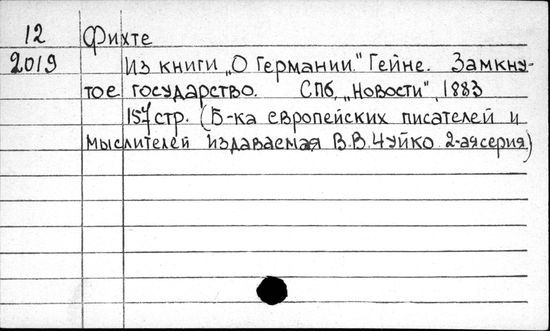 12 Фихте
2019 Из книги „О Германии" Гейне. Замкну-
тое государство. СПб, „Новости", 1883
157 стр. (Б-ка европейских писателей и
мыслителей издаваемая В.В. Чуйко 2-ая серия)